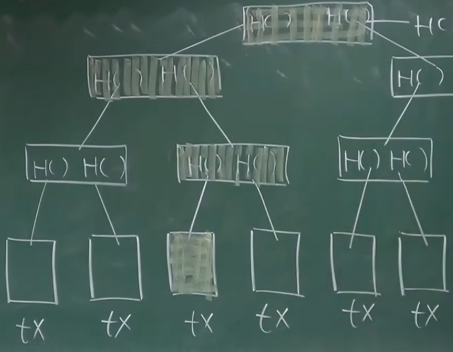 H( ) H( ) HC
H( ) H( ) H( )
H( ) H( ) H( ) H( ) H( ) H( )
tx tx tx tx tx tx